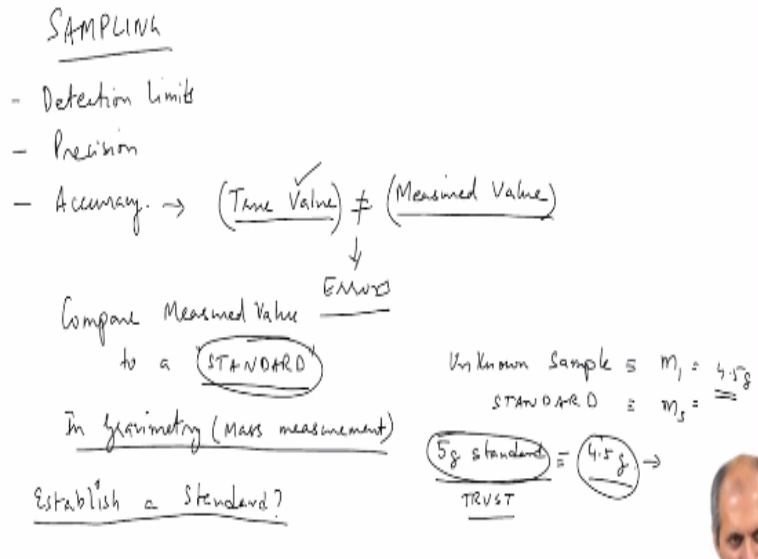 SAMPLING
- Detection limits
- Precision
- Accuracy. → (True Value) ≠ (Measured Value)
↓
Errors
Compare Measured Value
to a "STANDARD"
In Gravimetry (Mass measurement)
Establish a Standard?
Unknown Sample ≡ m₁ = 4.5g
STANDARD ≡ mₛ =
5g standard ≡ 4.5g →
TRUST